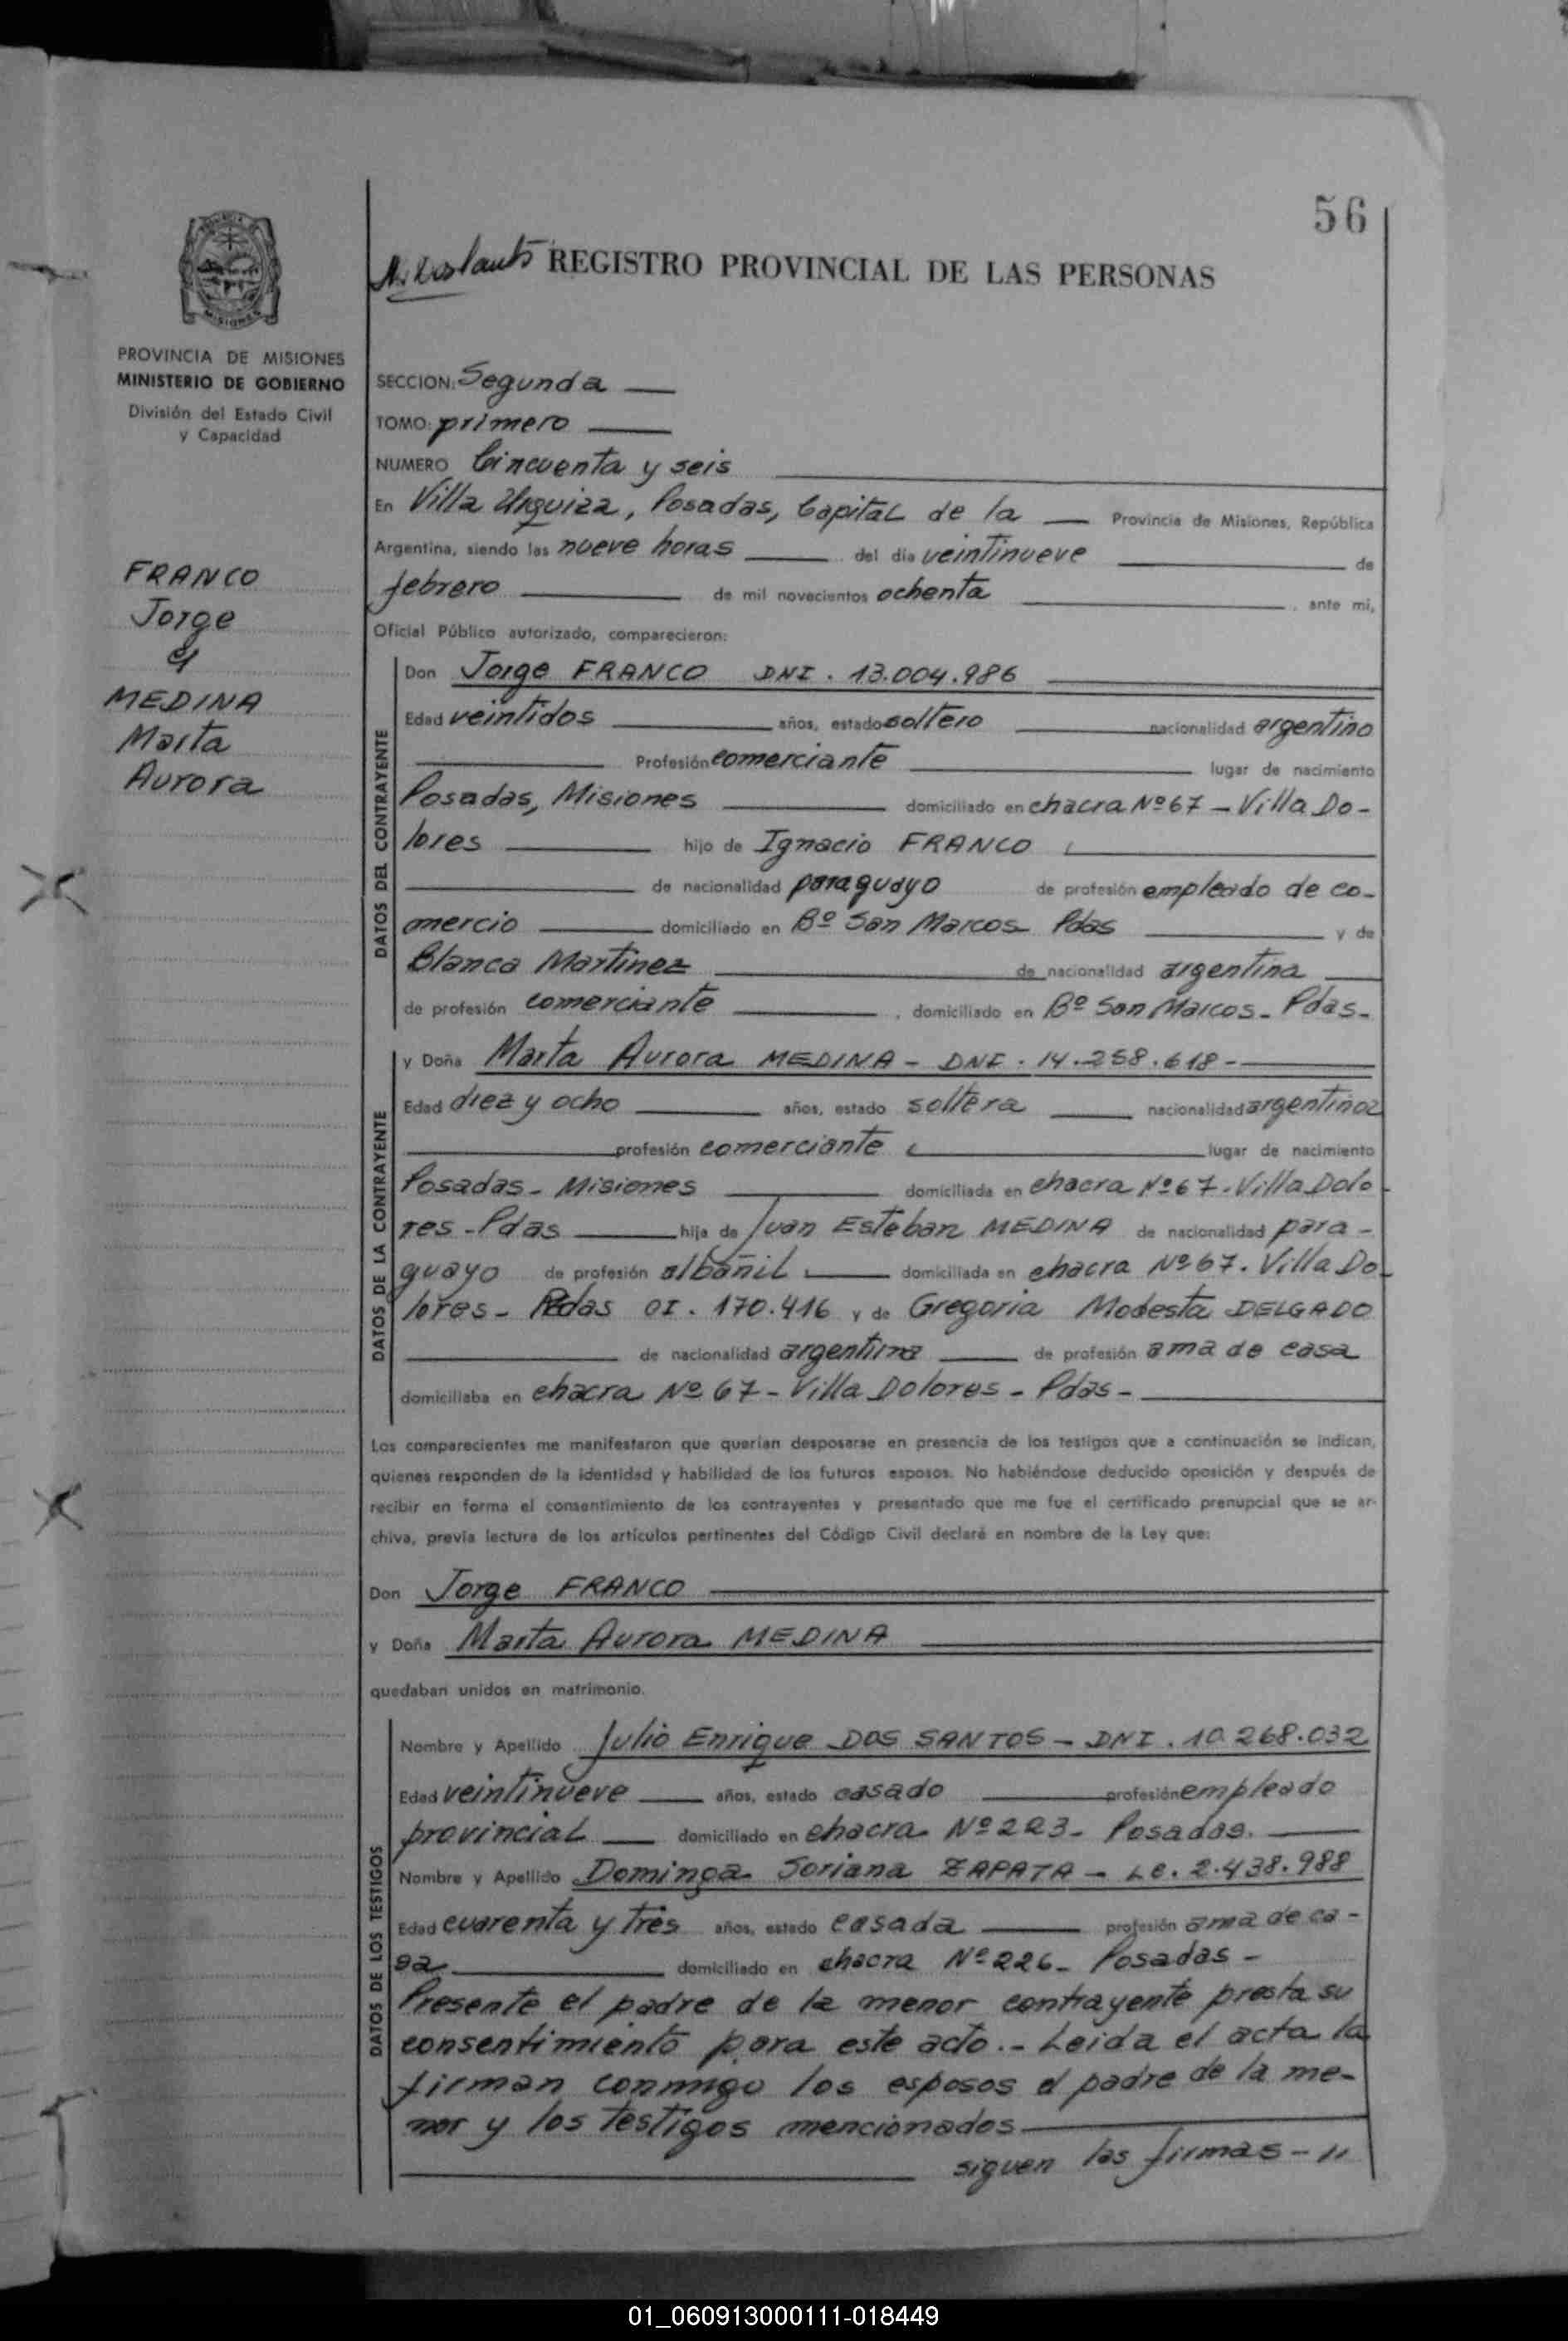 56
REGISTRO PROVINCIAL DE LAS PERSONAS
MISIONES
PROVINCIA DE MISIONES
MINISTERIO DE GOBIERNO
División del Estado Civil
y Capacidad
FRANCO
Jorge
y
MEDINA
Marta
Aurora
SECCION: Segunda
TOMO: primero
NUMERO Cincuenta y seis
En Villa Urquiza, Posadas, Capital de la Provincia de Misiones, República
Argentina, siendo las nueve horas del día veintinueve de
febrero de mil novecientos ochenta , ante mi,
Oficial Público autorizado, comparecieron:
DATOS DEL CONTRAYENTE
Don Jorge FRANCO DNI. 13.004.986
Edad veintidos años, estado soltero nacionalidad argentino
Profesión comerciante lugar de nacimiento
Posadas, Misiones domiciliado en chacra Nº 67 - Villa Do-
lores hijo de Ignacio FRANCO
de nacionalidad paraguayo de profesión empleado de co-
mercio domiciliado en Bº San Marcos Pdas y de
Blanca Martinez de nacionalidad argentina
de profesión comerciante , domiciliado en Bº San Marcos - Pdas -
DATOS DE LA CONTRAYENTE
y Doña Marta Aurora MEDINA - DNI. 14.258.618 -
Edad diez y ocho años, estado soltera nacionalidad argentina
profesión comerciante lugar de nacimiento
Posadas - Misiones domiciliada en chacra Nº 67 - Villa Dolo
res - Pdas hija de Juan Esteban MEDINA de nacionalidad para-
guayo de profesión albañil domiciliada en chacra Nº 67. Villa Do
lores - Pdas OI. 170.416 y de Gregoria Modesta DELGADO
de nacionalidad argentina de profesión ama de casa
domiciliaba en chacra Nº 67 - Villa Dolores - Pdas -
Los comparecientes me manifestaron que querían desposarse en presencia de los testigos que a continuación se indican,
quienes responden de la identidad y habilidad de los futuros esposos. No habiéndose deducido oposición y después de
recibir en forma el consentimiento de los contrayentes y presentado que me fue el certificado prenupcial que se ar-
chiva, previa lectura de los artículos pertinentes del Código Civil declaré en nombre de la Ley que:
Don Jorge FRANCO
y Doña Marta Aurora MEDINA
quedaban unidos en matrimonio.
DATOS DE LOS TESTIGOS
Nombre y Apellido Julio Enrique DOS SANTOS - DNI. 10.268.032
Edad veintinueve años, estado casado profesión empleado
provincial domiciliado en chacra Nº 223 - Posadas.
Nombre y Apellido Dominga Soriana ZAPATA - LC. 2.438.988
Edad cuarenta y tres años, estado casada profesión ama de ca-
sa domiciliado en chacra Nº 226 - Posadas -
Presente el padre de la menor contrayente presta su
consentimiento para este acto.- Leida el acta la
firman conmigo los esposos el padre de la me-
nor y los testigos mencionados
siguen las firmas - //
01_060913000111-018449